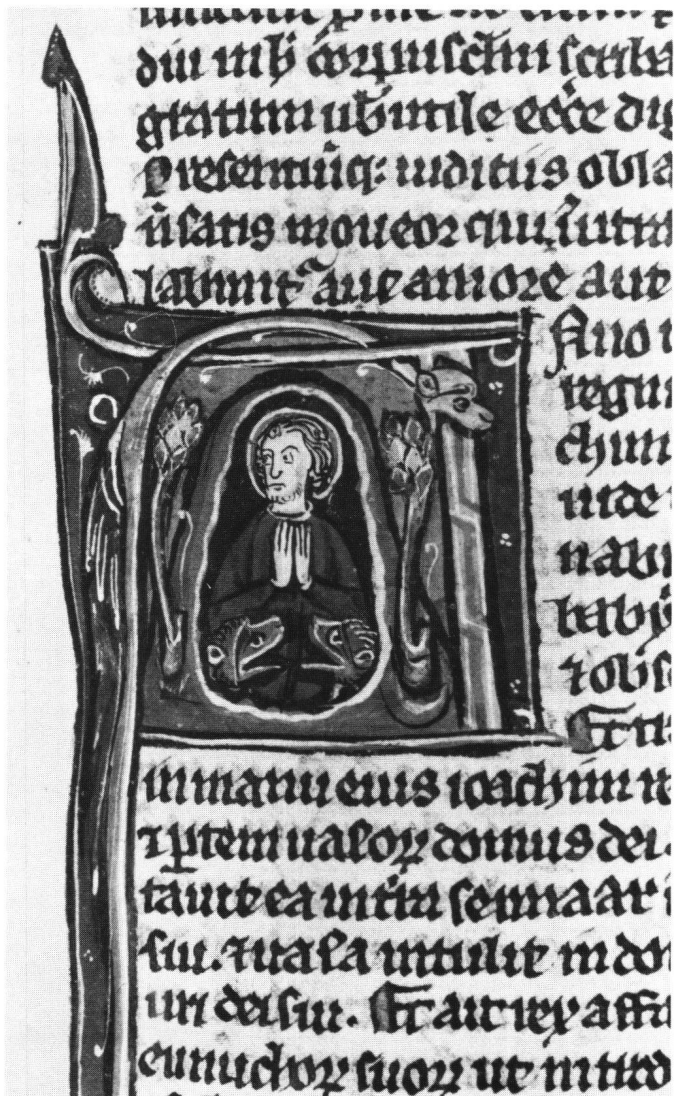 diu corpusclm scriba
gratum ub̄ utile ecc̄e dig
Presentiūq: iudiciis obla
n̄ satis moueor qui ī utra
labunt᷑ aut amore aut
Āno t
regni
chim
iude
nabu
baby
⁊ obs
Et
in manu eius ioachim re
⁊ ꝑtem uasoꝝ domus dei.
tauit ea in tr̄a sennaar
sui. ⁊ uasa intulit in dom
uri dei sui. Et ait rex asfa
eunuchoꝝ suoꝝ ut intro